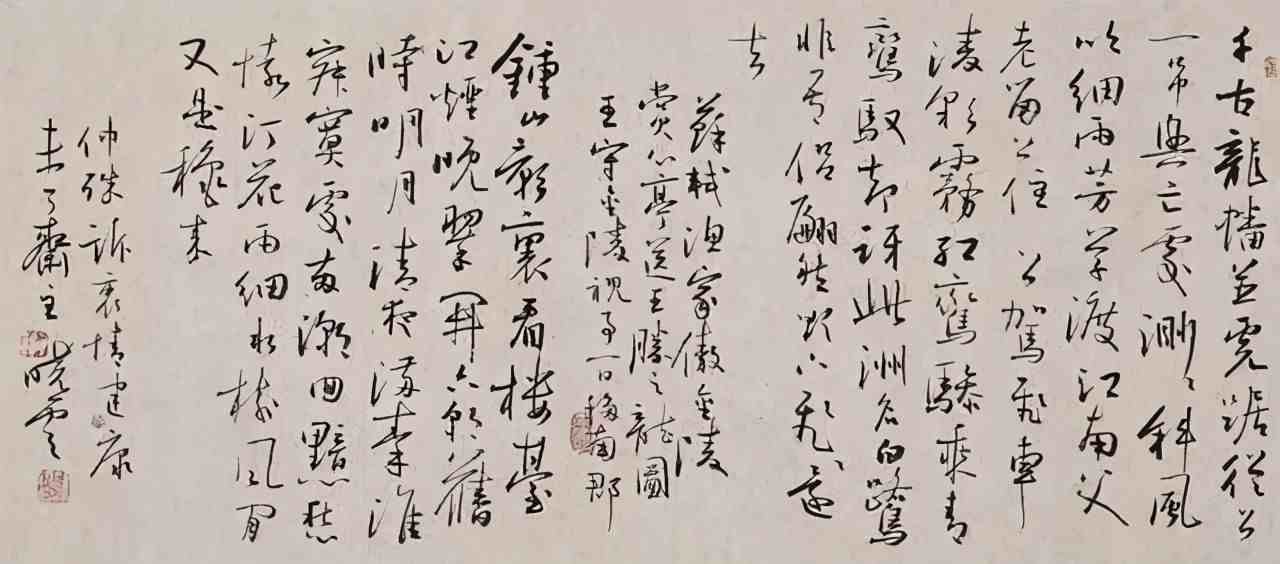 千古龍蟠並虎踞從公
一吊興亡處渺〻斜風
吹細雨芳草渡江南父
老留公住公駕飛車
凌彩霧紅鸞驂乘青
鸞馭却訝此洲名白鷺
非吾侣翩然欲下飛還
去
蘇軾漁家傲金陵
賞心亭送王勝之龍圖
王守金陵視事一日移南郡
鍾山影裏看樓臺
江煙晚翠開六朝舊
時明月清夜滿秦淮
寂寞處兩潮回黯愁
懷汀花雨細水樹風閒
又是穐來
仲殊訴衷情建康
未了齋主曉雲